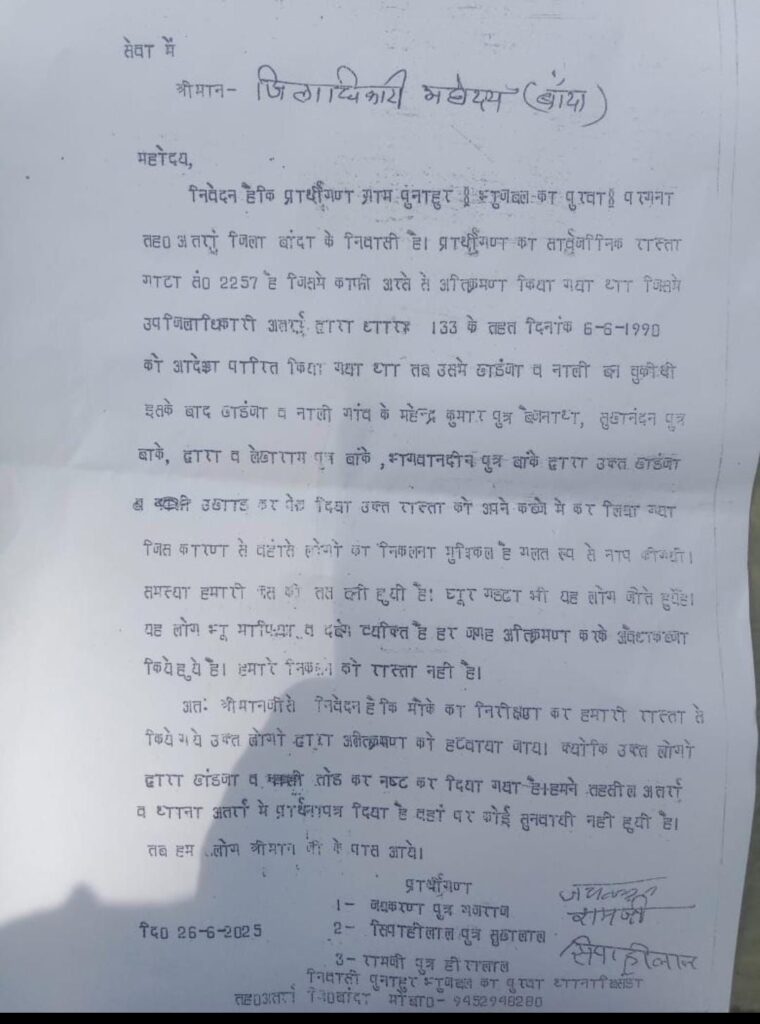 सेवा में
श्रीमान- जिलाधिकारी महोदय (बाँदा)
महोदय,
निवेदन हैकि प्रार्थीगण ग्राम पुनाहुर भुजबल का पुरवा परगना
तह0अतर्रा जिला बांदा के निवासी है। प्रार्थीगण का सार्वजनिक रास्ता
गाटा सं0 2257 है जिसमे काफी अरसे से अतिक्रमण किया गया था जिसमे
उपजिलाधिकारी अतर्रा द्वारा धारा 133 के तहत दिनांक 6-6-1990
को आदेश पारित किया गया था तब उसमे खडंजा व नाली बन चुकीथी
इसके बाद खडंजा व नाली गांव के महेन्द्र कुमार पुत्र बैजनाथ, सुखनंदन पुत्र
बाके, द्वारा व लेखराम पुत्र बांके ,भगवानदीन पुत्र बांके द्वारा उक्त खडंजा
उखाड कर दिया उक्त रास्ता को अपने कब्जे मे कर लिया गया
जिस कारण से वहांसे लोगों का निकलना मुश्किल है गलत रूप से नाप कीगयी।
समस्या हमारी जस की तस बनी हुयी है। घूर गड्ढा भी यह लोग जोते हुयेहै।
यह लोग भू माफिया व दबंग व्यक्ति है हर जगह अतिक्रमण करके अवैधकब्जा
कियेहुये है। हमारे निकलने को रास्ता नही है।
अतः श्रीमानजीसे निवेदन हैकि मौके का निरीक्षण कर हमारी रास्ता से
किये गये उक्त लोगों द्वारा अतिक्रमण को हटवाया जाय। क्योकि उक्त लोगो
द्वारा खडंजा व नाली तोड कर नष्ट कर दिया गया है।हमने तहसील अतर्रा
व थाना अतर्रा मे प्रार्थनापत्र दिया है वहां पर कोई सुनवायी नही हुयी है।
तब हम लोग श्रीमान जी के पास आये।
प्रार्थीगण
1- जयकरण पुत्र गजराज जयकरन
रामजी
दि0 26-6-2025 2- सिपाहीलाल पुत्र सुखलाल
सिपाहीलाल
3- रामजी पुत्र हीरालाल
निवासी पुनाहुर भुजबल का पुरवा थाना
तह0अतर्रा जि0बांदा मोबा0- 9452948280